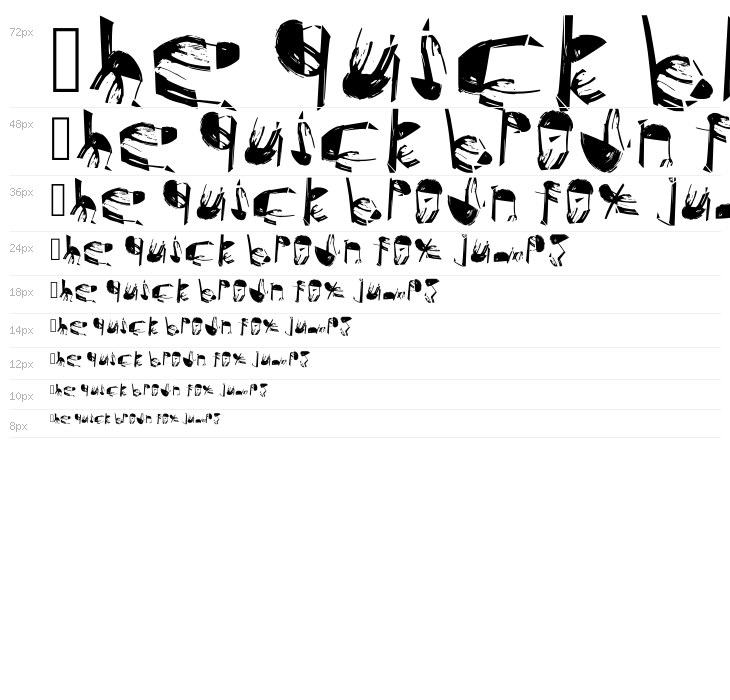 72px ▯he quick b
48px ▯he quick brown f
36px ▯he quick brown fox ju
24px ▯he quick brown fox jumps
18px ▯he quick brown fox jumps
14px ▯he quick brown fox jumps
12px ▯he quick brown fox jumps
10px ▯he quick brown fox jumps
8px ▯he quick brown fox jumps